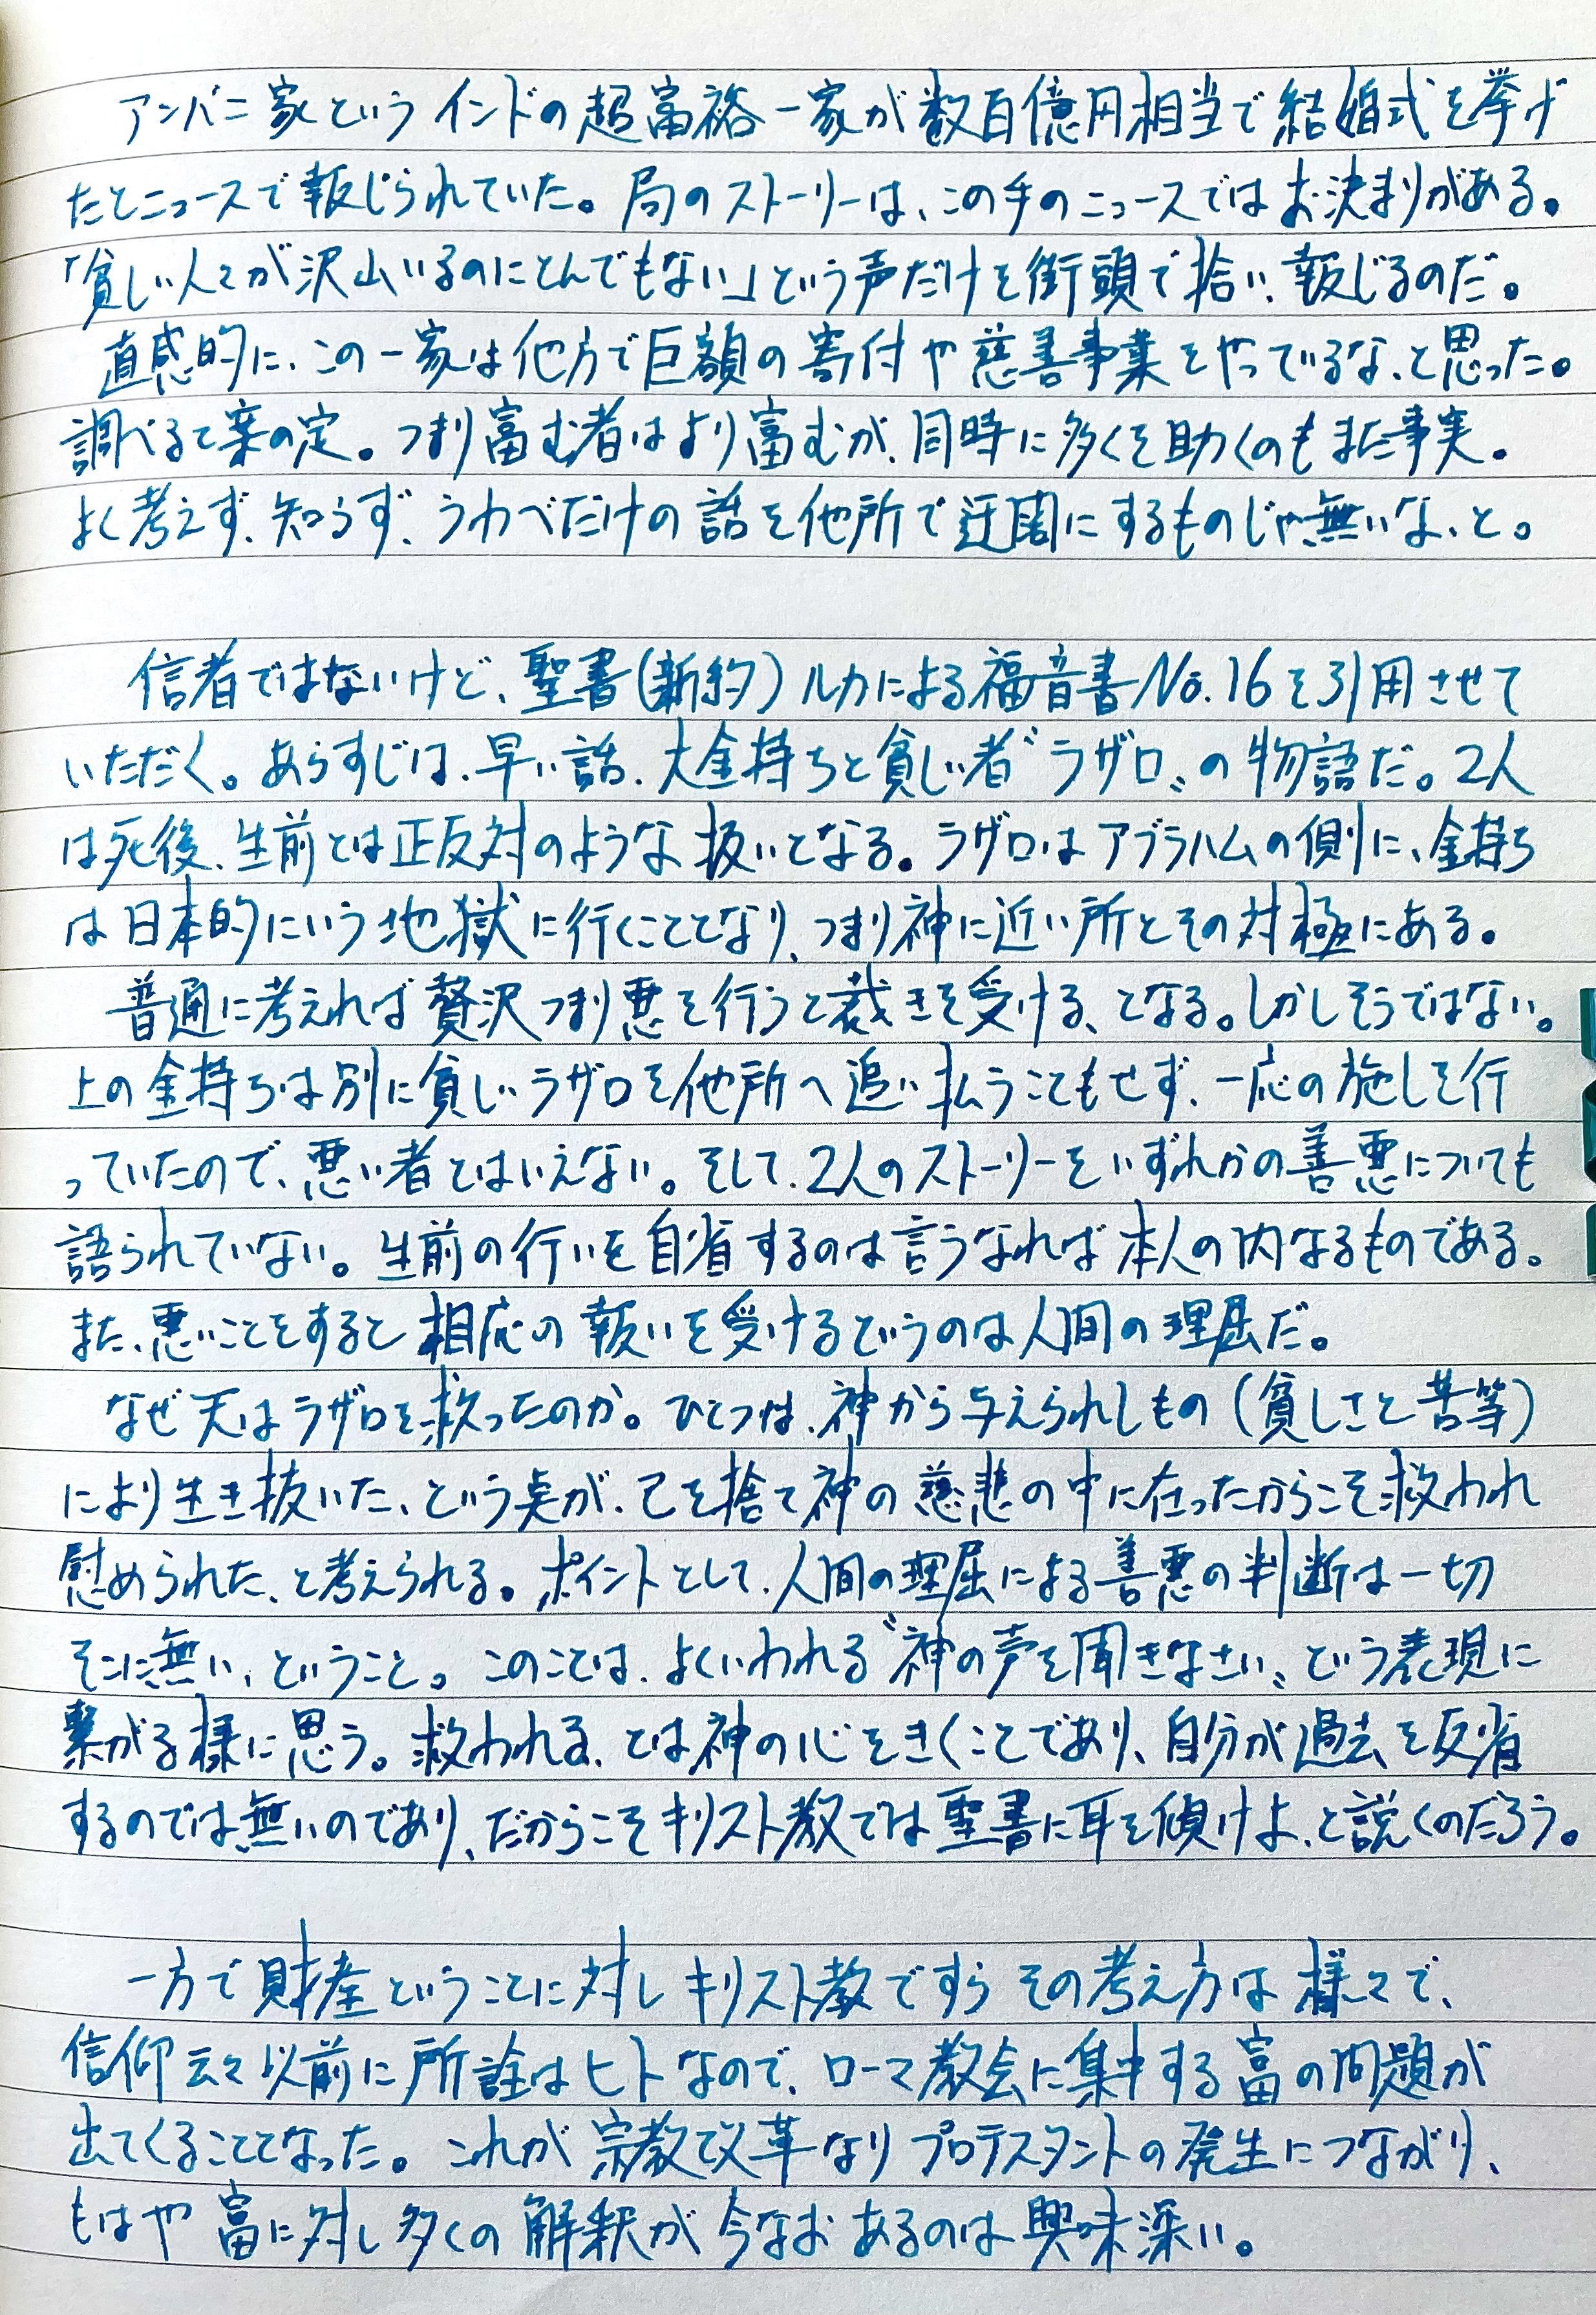 アンバニ家というインドの超富裕一家が数百億円相当で結婚式を挙げ
たとニュースで報じられていた。局のストーリーは、この手のニュースではお決まりがある。
「貧しい人々が沢山いるのにとんでもない」という声だけを街頭で拾い、報じるのだ。
直感的に、この一家は他方で巨額の寄付や慈善事業をやっているな、と思った。
調べると案の定。つまり富む者はより富むが、同時に多くを助くのもまた事実。
よく考えず、知らず、うわべだけの話を他所で迂闊にするものじゃ無いな、と。
信者ではないけど、聖書(新約)ルカによる福音書No.16を引用させて
いただく。あらすじは、早い話、大金持ちと貧しい者〝ラザロ〟の物語だ。2人
は死後、生前とは正反対のような扱いとなる。ラザロはアブラハムの側に、金持ち
は日本的にいう地獄に行くこととなり、つまり神に近い所とその対極にある。
普通に考えれば贅沢つまり悪を行うと裁きを受ける、となる。しかしそうではない。
上の金持ちは別に貧しいラザロを他所へ追い払うこともせず、一応の施しを行
っていたので、悪い者とはいえない。そして、2人のストーリーをいずれかの善悪についても
語られていない。生前の行いを自省するのは言うなれば本人の内なるものである。
また、悪いことをすると相応の報いを受けるというのは人間の理屈だ。
なぜ天はラザロを救ったのか。ひとつは、神から与えられしもの(貧しさと苦等)
により生き抜いた、という点が、己を捨て神の慈悲の中に在ったからこそ救われ
慰められた、と考えられる。ポイントとして、人間の理屈による善悪の判断は一切
そこに無い、ということ。このことは、よくいわれる〝神の声を聞きなさい〟という表現に
繋がる様に思う。救われる、とは神の心をきくことであり、自分が過去を反省
するのでは無いのであり、だからこそキリスト教では聖書に耳を傾けよ、と説くのだろう。
一方で財産ということに対しキリスト教ですらその考え方は様々で、
信仰云々以前に所詮はヒトなので、ローマ教会に集中する富の問題が
出てくることとなった。これが宗教改革なりプロテスタントの発生につながり、
もはや富に対し多くの解釈が今なおあるのは興味深い。